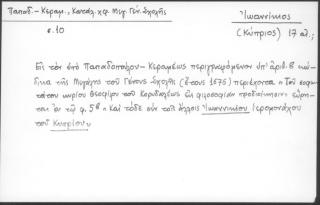 Παπαδ.-Κεραμ., Καταλ. χφ. Μεγ. Γεν. Σχολῆς
Ἰωαννίκιος
σ. 10
(Κύπριος) 17 αἰ.;
Εἰς τὸν ὑπὸ Παπαδοπούλου-Κεραμέως περιγραφόμενον ὑπ' ἀριθ. 8 κώδικα
τῆς Μεγάλης τοῦ Γένους Σχολῆς (ἔτους 1675) περιέχονται "Τοῦ σοφω-
τάτου κυρίου Θεοφίλου τοῦ Κορυδαλλέως εἰς φιλοσοφίαν προδιοίκησις" εὕρη-
ται ἐν τῷ φ. 5β "Καὶ τόδε σὺν τοῖς ἄλλοις Ἰωαννικίου Ἱερομονάχου
τοῦ Κυπρίου„